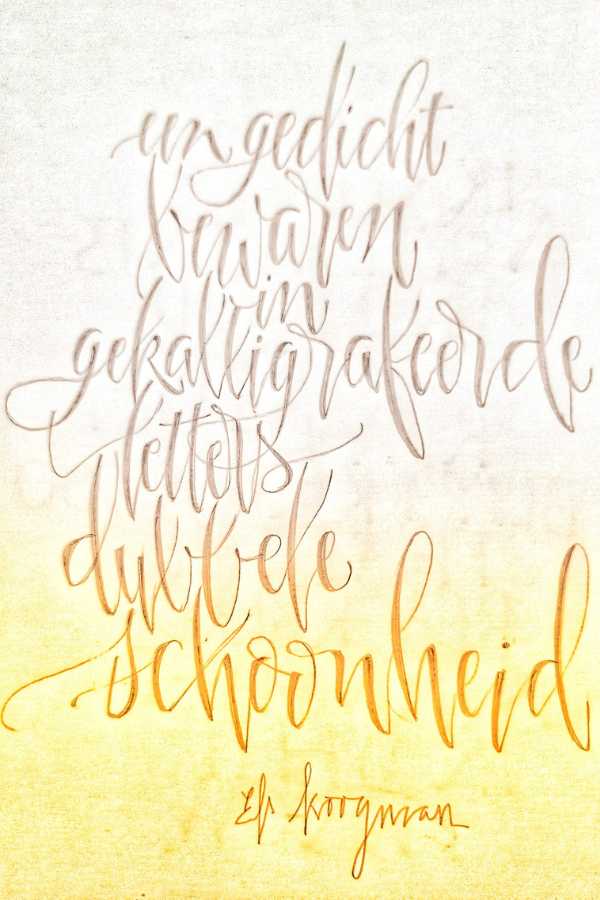 een gedicht
bewaren
in
gekalligrafeerde
letters
dubbele
schoonheid